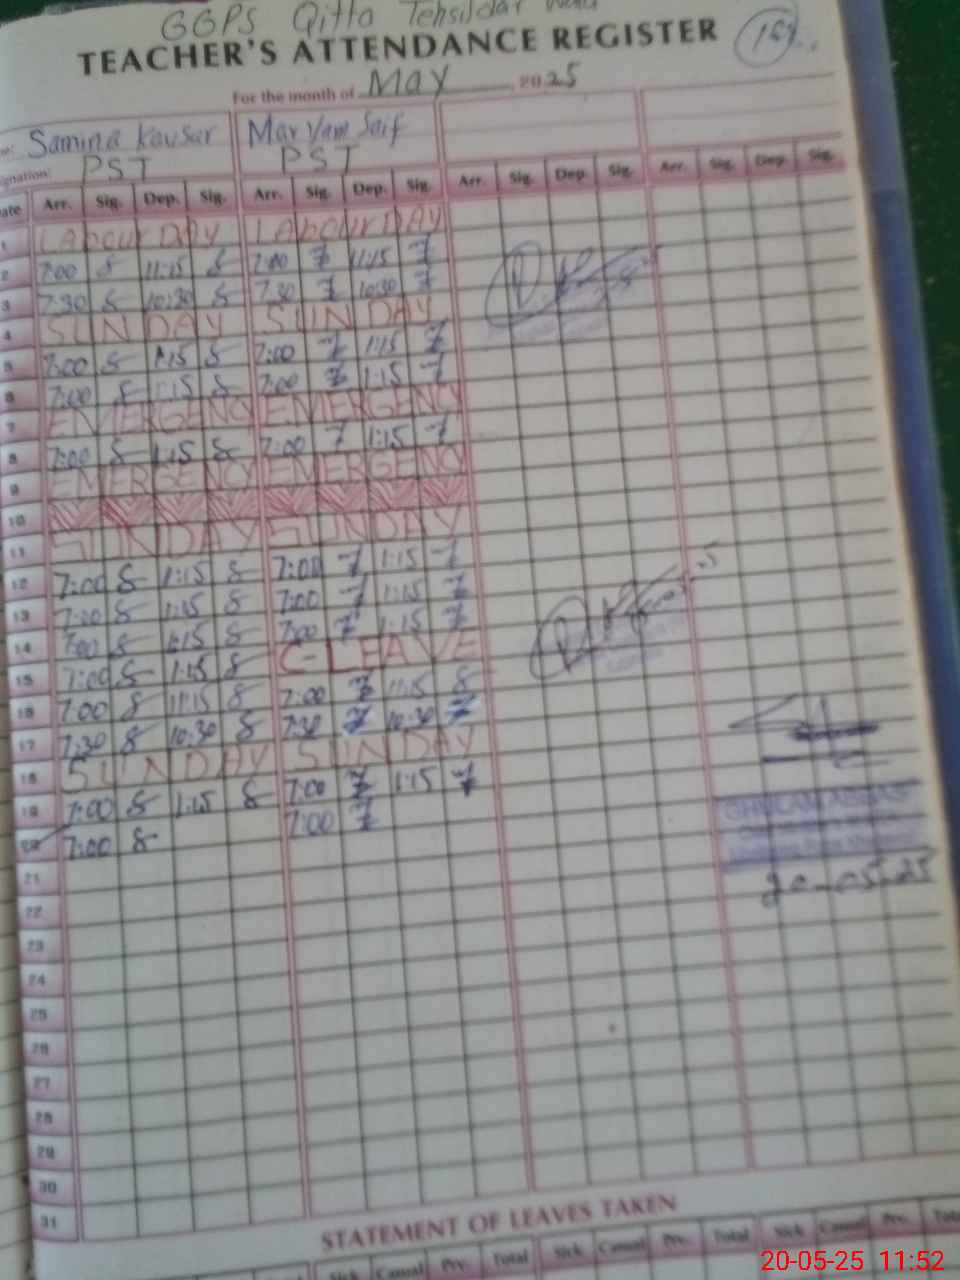 GGPS Qitta Tehsildar Wala
TEACHER'S ATTENDANCE REGISTER
For the month of May, 2025
Samina Kausar Maryam Saif
gnation: PST PST
ate Arr. Sig. Dep. Sig. Arr. Sig. Dep. Sig. Arr. Sig. Dep. Sig. Arr. Sig. Dep. Sig.
1 LABOUR DAY LABOUR DAY
2 7:00 11:15 7:00 11:15
3 7:30 10:30 7:30 10:30
4 SUNDAY SUNDAY
5 7:00 1:15 7:00 1:15
6 7:00 1:15 7:00 1:15
7 EMERGENCY EMERGENCY
8 7:00 1:15 7:00 1:15
9 EMERGENCY EMERGENCY
10
11 SUNDAY SUNDAY
12 7:00 1:15 7:00 1:15
13 7:00 1:15 7:00 1:15
14 7:00 1:15 7:00 1:15
15 7:00 1:15 C-LEAVE
16 7:00 11:15 7:00 11:15
17 7:30 10:30 7:30 10:30
18 SUNDAY SUNDAY
19 7:00 1:15 7:00 1:15
20 7:00 7:00
GHULAM ABBAS
21
20-05-25
22
23
24
25
26
27
28
29
30
31
STATEMENT OF LEAVES TAKEN
Sick Casual Prv. Total Sick Casual Prv. Total Sick Casual Prv. Tota
20-05-25 11:52